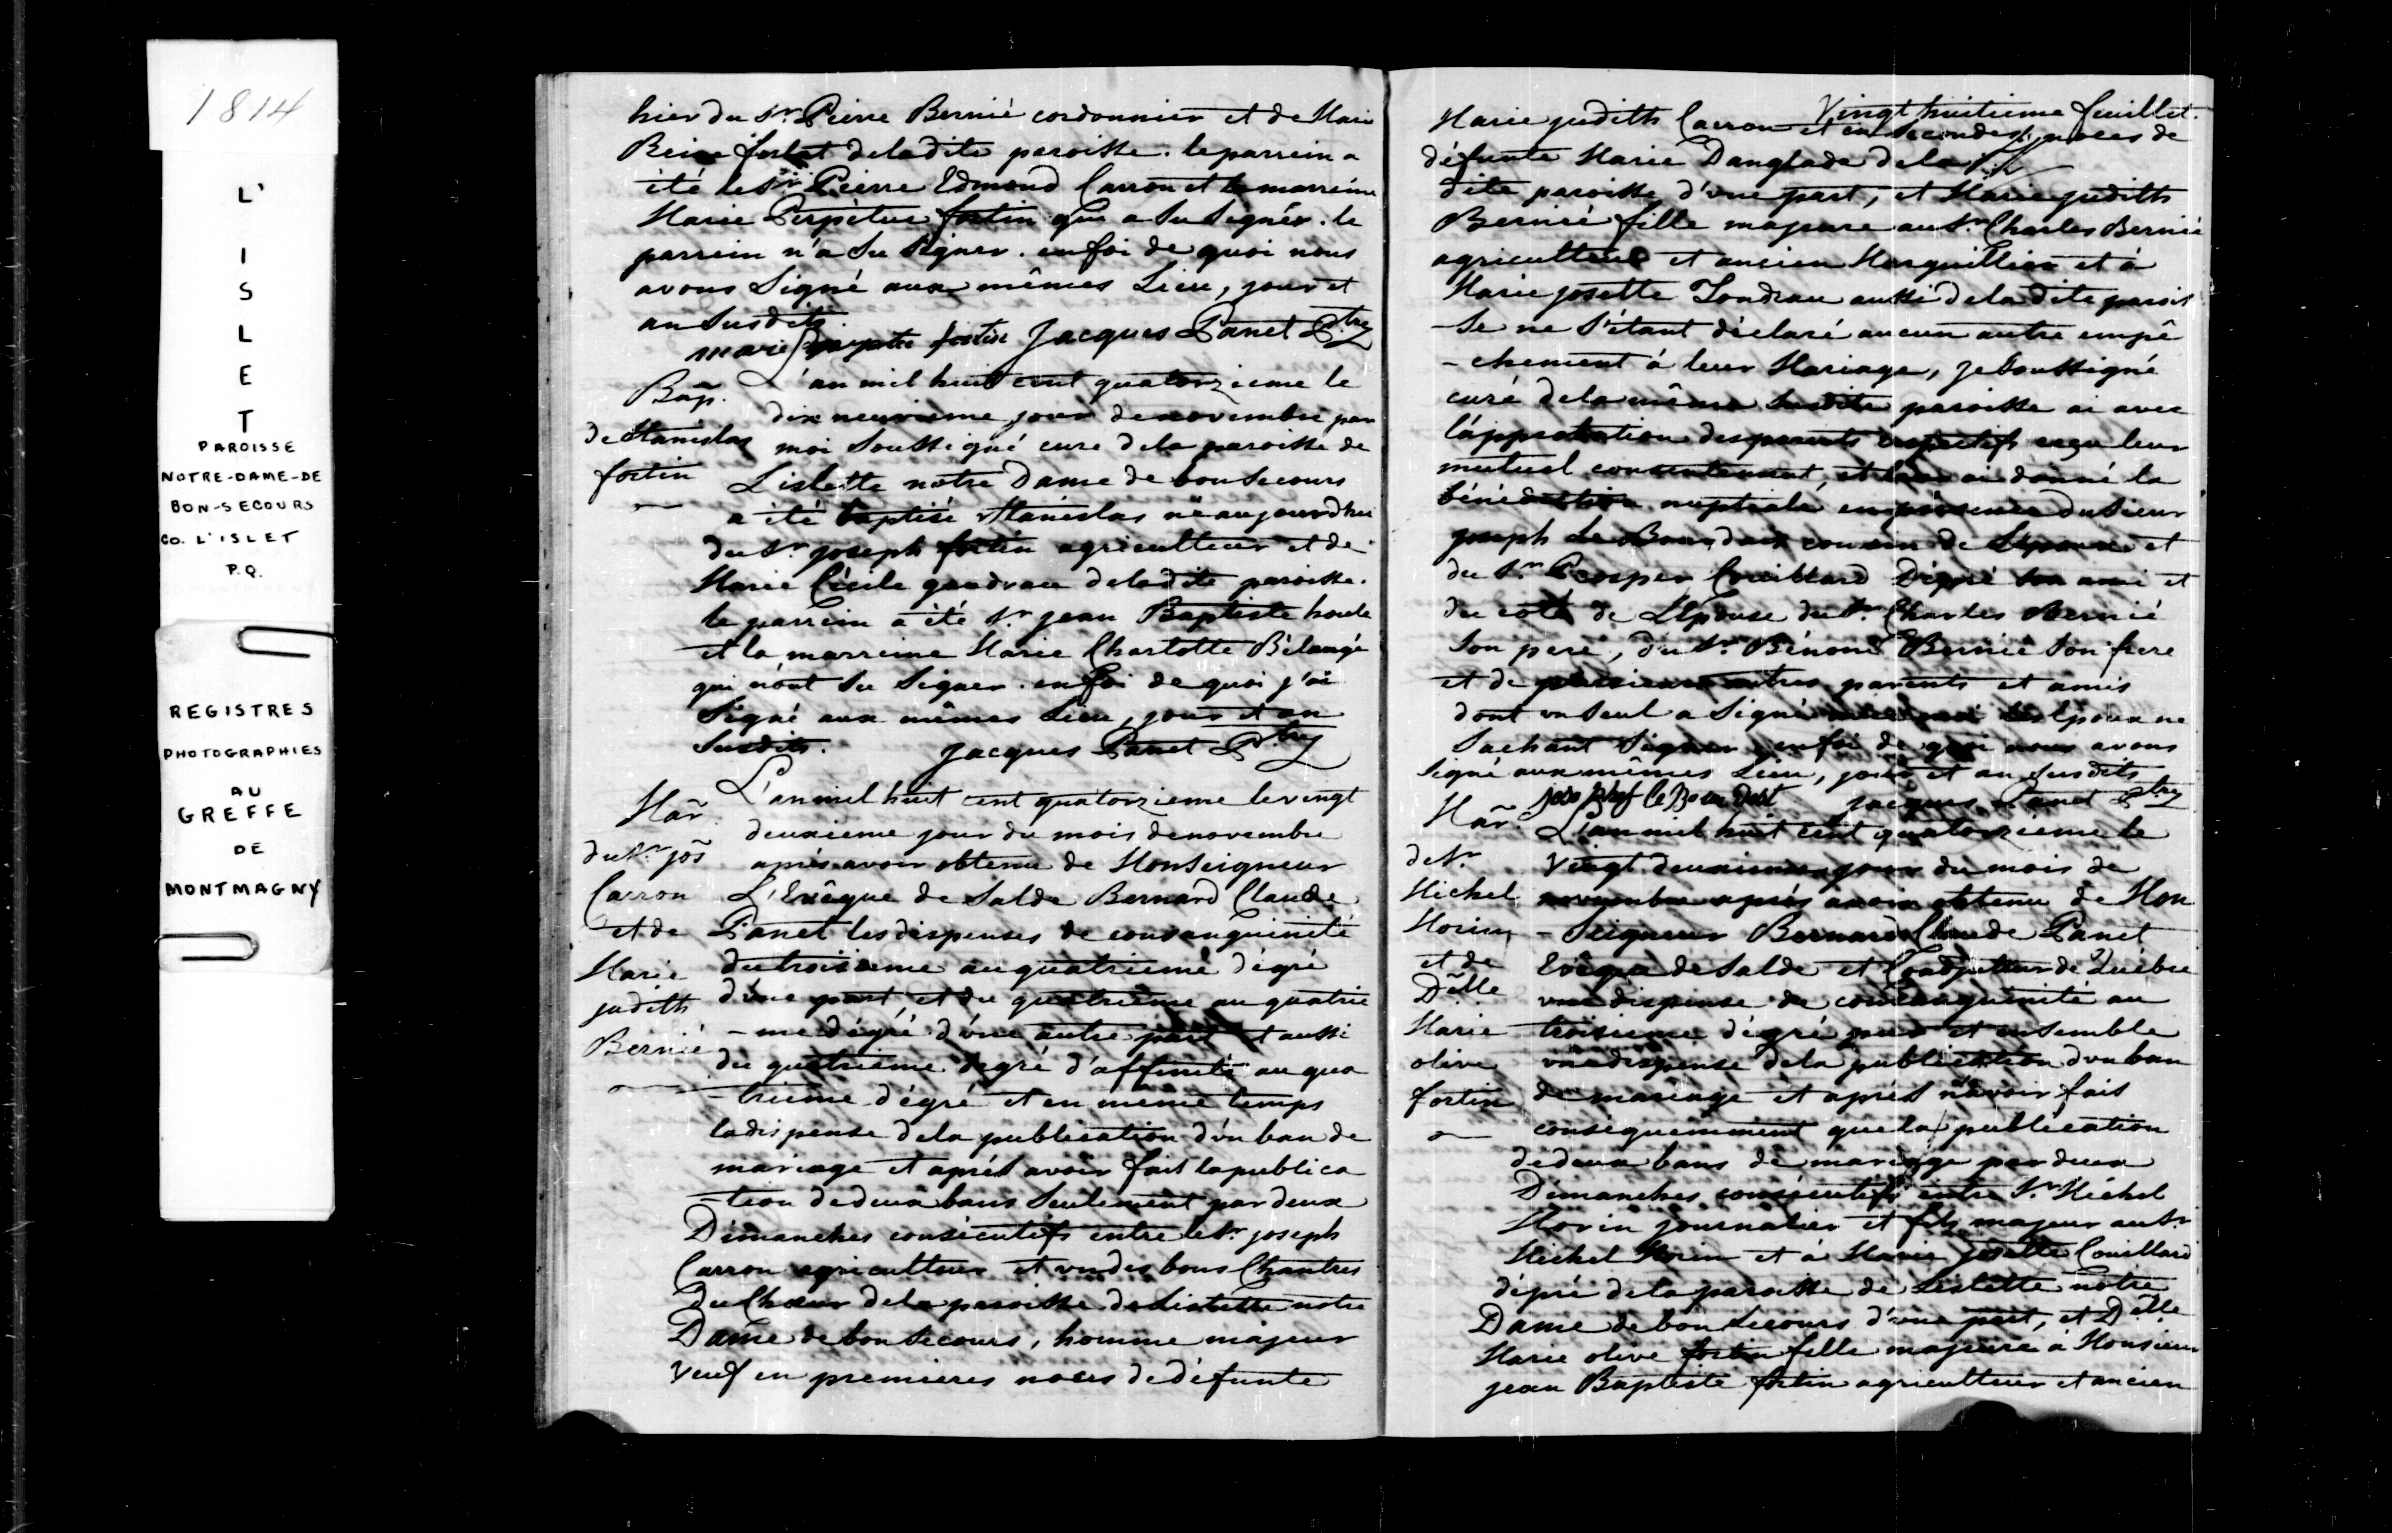 1814
L'
I
S
L
E
T
PAROISSE
NOTRE-DAME-DE
BON-SECOURS
CO. L'ISLET
P.Q.
REGISTRES
PHOTOGRAPHIES
AU
GREFFE
DE
MONTMAGNY
hier du Sr. Pierre Bernié cordonnier et de Marie
Reine fortat de la dite paroisse. le parrein a
été le Sr. Pierre Edmond Carron et la marreine
Marie Perpétue fortin qui a Su Signér. le
parrein n'a Su Signer. en foi de quoi nous
avons Signé aux mêmes Lieu, jour et
an Susdits
marie perpetu fortin Jacques Panet Ptre
Bap. L'an mil huit cent quatorzieme le
dix neuvieme jour de novembre par
de Stanislas moi Soussigné curé de la paroisse de
fortin Lislette notre Dame de bonsecours
a été baptisé Stánislas né aujourdhui
du Sr. joseph fortin agriculteur et de
Marie Cécile gaudreau de la dite paroisse.
le parrein a été Sr. jean Baptiste houle
et la marreine Marie Charlotte Bélangé
qui n'ont Su Signer. en foi de quoi j'ai
Signé aux mêmes Lieu, jour et an
Susdits. Jacques Panet Ptre
Mar. L'an mil huit cent quatorzieme le vingt
deuxieme jour du mois de novembre
du Sr. jos aprés avoir obtenu de Monseigneur
Carron L'Evêque de Salde Bernard Claude
et de Panet les dispenses de consanguinité
Marie du troisieme au quatrieme dégré
judith d'une part, et du quatrieme au quatrie
Bernié -me dégré d'une autre part et aussi
du quatrieme degré d'affinité au qua
-trieme dégré et en même temps
la dispense de la publication d'un ban de
mariage et aprés avoir fait la publica
-tion de deux bans Seulement par deux
Dimanches consécutifs entre le Sr. joseph
Carron agriculteur et un des bons Chantres
du Chœur de la paroisse de Lislette notre
Dame de bon Secours, homme majeur
veuf en premieres noces de défunte
Vingt huitieme feuillet.
Marie judith Carron et en Secondes noces de
défunte Marie Danglade de la
dite paroisse d'une part, et Marie judith
Bernié fille majeure au Sr. Charles Bernié
agriculteur et ancien Marguillier et à
Marie josette Tondreau aussi de la dite parois
-se ne S'étant déclaré aucun autre empê
-chement à leur Mariage, je Soussigné
curé de la même Susdite paroisse ai avec
l'approbation des parents respectifs reçu leur
mutuel consentement, et leur ai donné la
bénédiction nuptiale en présence du Sieur
joseph Le Bourdais cousin de L'époux et
du Sr. Prosper Couillard Dépré Son ami et
du coté de L'Epouse du Sr. Charles Bernié
Son pere, du Sr. Bénoni Bernié Son frere
et de plusieurs autres parents et amis
dont un Seul a Signé avec moi les Epoux ne
Sachant Signer. en foi de quoi nous avons
Signé aux mêmes Lieu, jour et an Susdits
joseph le Bourdest Jacques Panet Ptre
Mar. L'an mil huit cent quatorzieme le
de Sr. vingt deuxieme jour du mois de
Michel novembre aprés avoir obtenu de Mon
Morin -Seigneur Bernard Claude Panet
et de Evêque de Salde et Coadjuteur de Québec
Dlle une dispense de consanguinité au
Marie troisieme dégré pur et ensemble
olive une dispense de la publication d'un ban
fortin de mariage et aprés n'avoir fait
conséquemment que la publication
de deux bans de mariage par deux
Dimanches consécutifs entre Sr. Michel
Morin journalier et fils majeur au Sr
Michel Morin et à Marie josette Couillard
dépré de la paroisse de Lislette notre
Dame de bon Secours d'une part, et Dlle
Marie olive fortin fille majeure à Monsieur
jean Baptiste fortin agriculteur et ancien